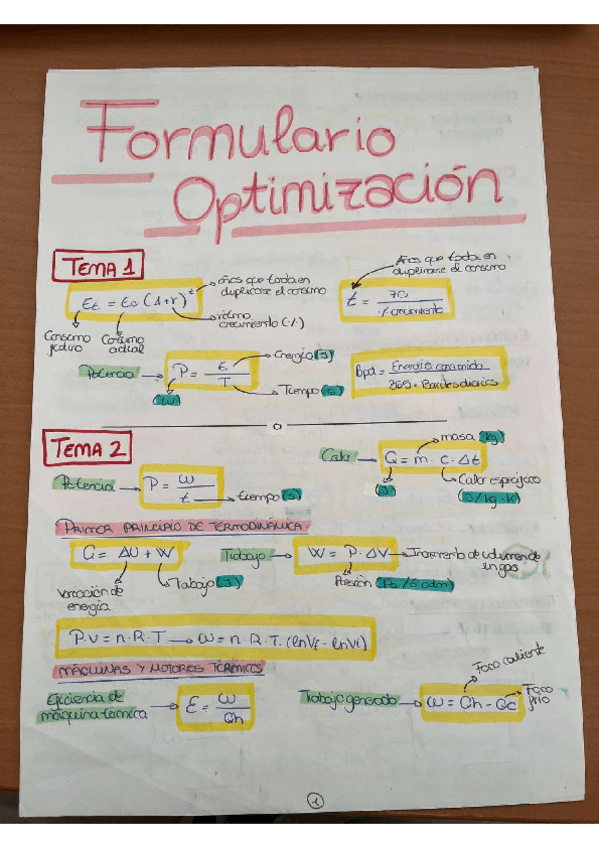 Formulario
Optimización
TEMA 1
Et = Eo (1+r)^t
años que tarda en
duplicarse el consumo
ritmo
crecimiento (%)
Consumo
Consumo
actual
t = 70 / % crecimiento
Años que tarda en
duplicarse el consumo
Potencia → P = E / T
Energía (J)
Tiempo (s)
(W)
Bpd = Energía consumida / 365 · Barriles diarios
TEMA 2
Potencia → P = W / t → tiempo (s)
Calor → Q = m · c · Δt
masa (kg)
(J)
Calor específico
(J/kg·K)
PRIMER PRINCIPIO DE TERMODINÁMICA
Q = ΔU + W
Variación de
energía
Trabajo (J)
Trabajo → W = P · ΔV → Incremento de volumen de
un gas
Presión (Pa / ó atm)
P.V = n · R · T → W = n · R · T · (lnVf - lnVi)
MÁQUINAS Y MOTORES TÉRMICOS
Eficiencia de
máquina térmica → E = W / Qh
Trabajo generado → W = Qh - Qc
Foco caliente
Foco
frío
1